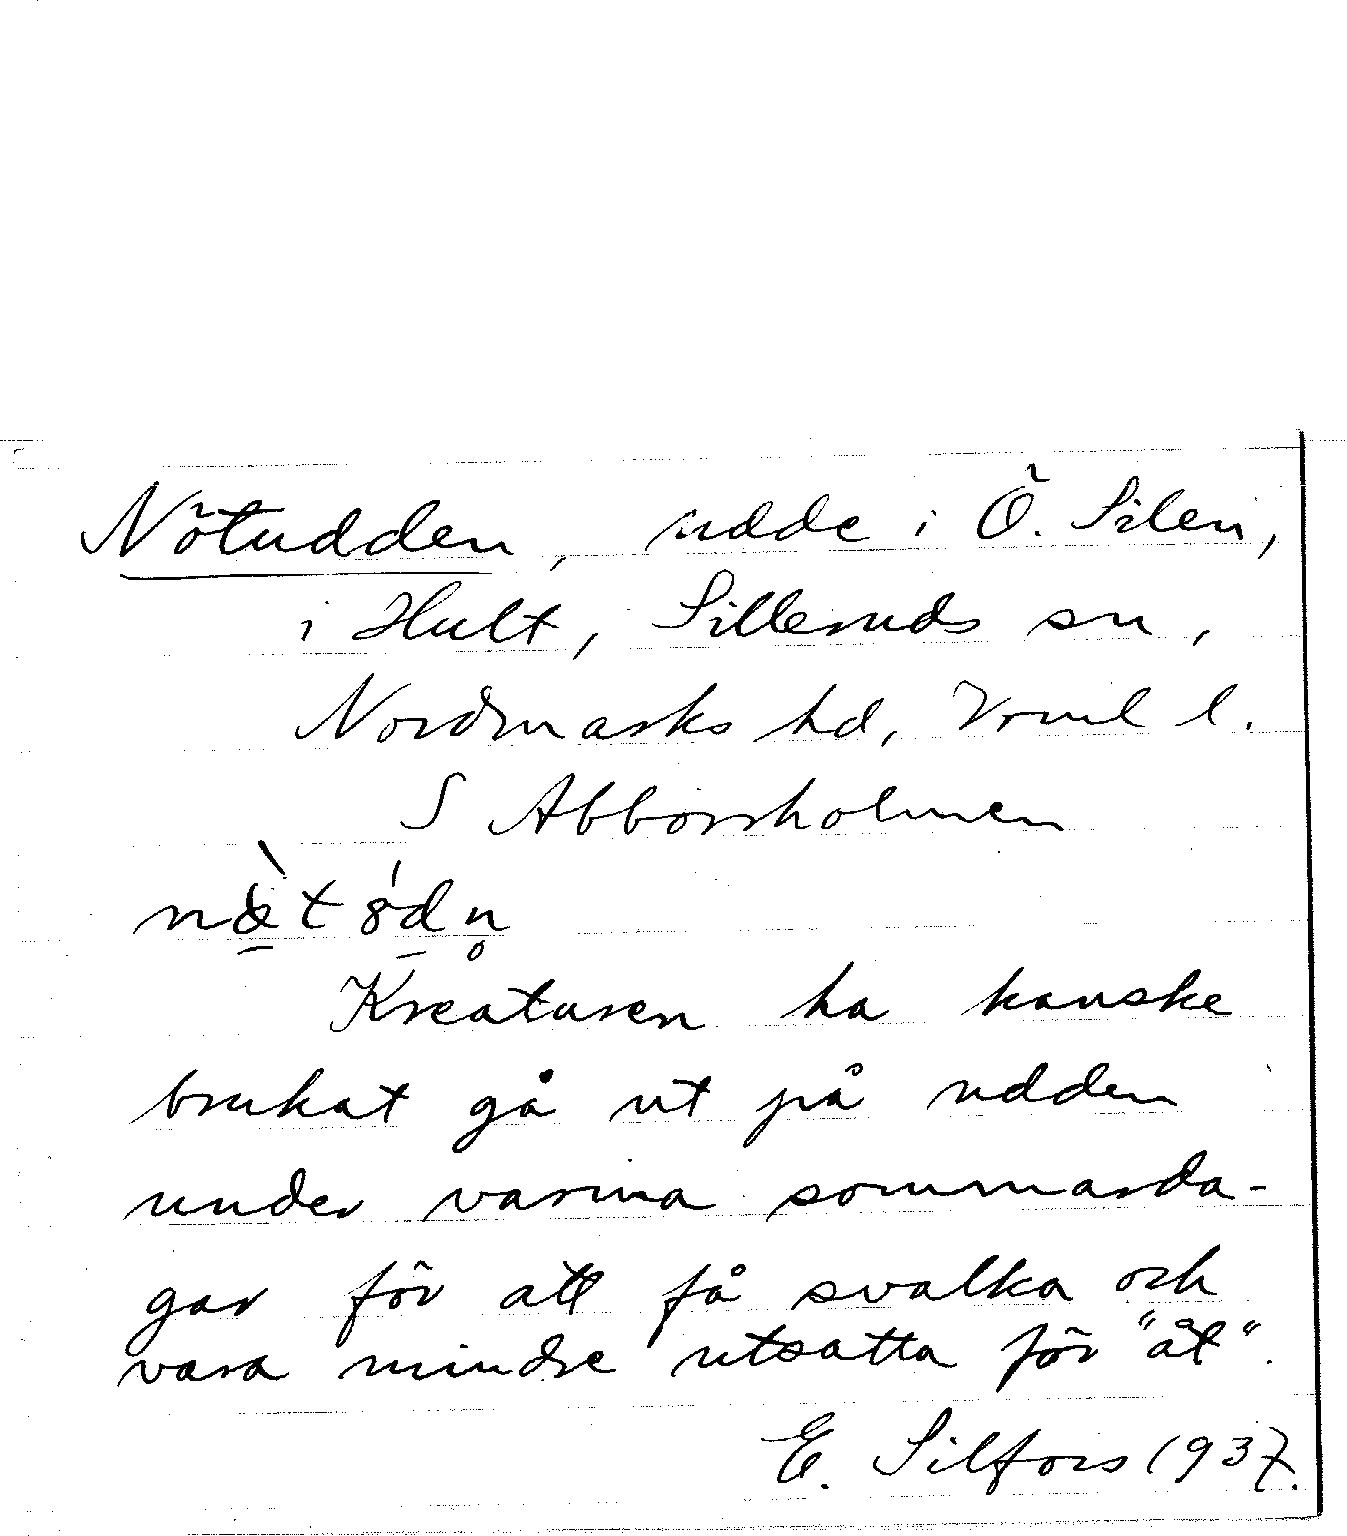 Nötudden, udde i Ö. Silen,
i Hult, Silleruds sn,
Nordmarks hd, Vrml l.
S Abborrholmen
Kreaturen ha kanske
brukat gå ut på udden
under varma sommarda-
gar för att få svalka och
vara mindre utsatta för "åt".
E. Silfors 1937.